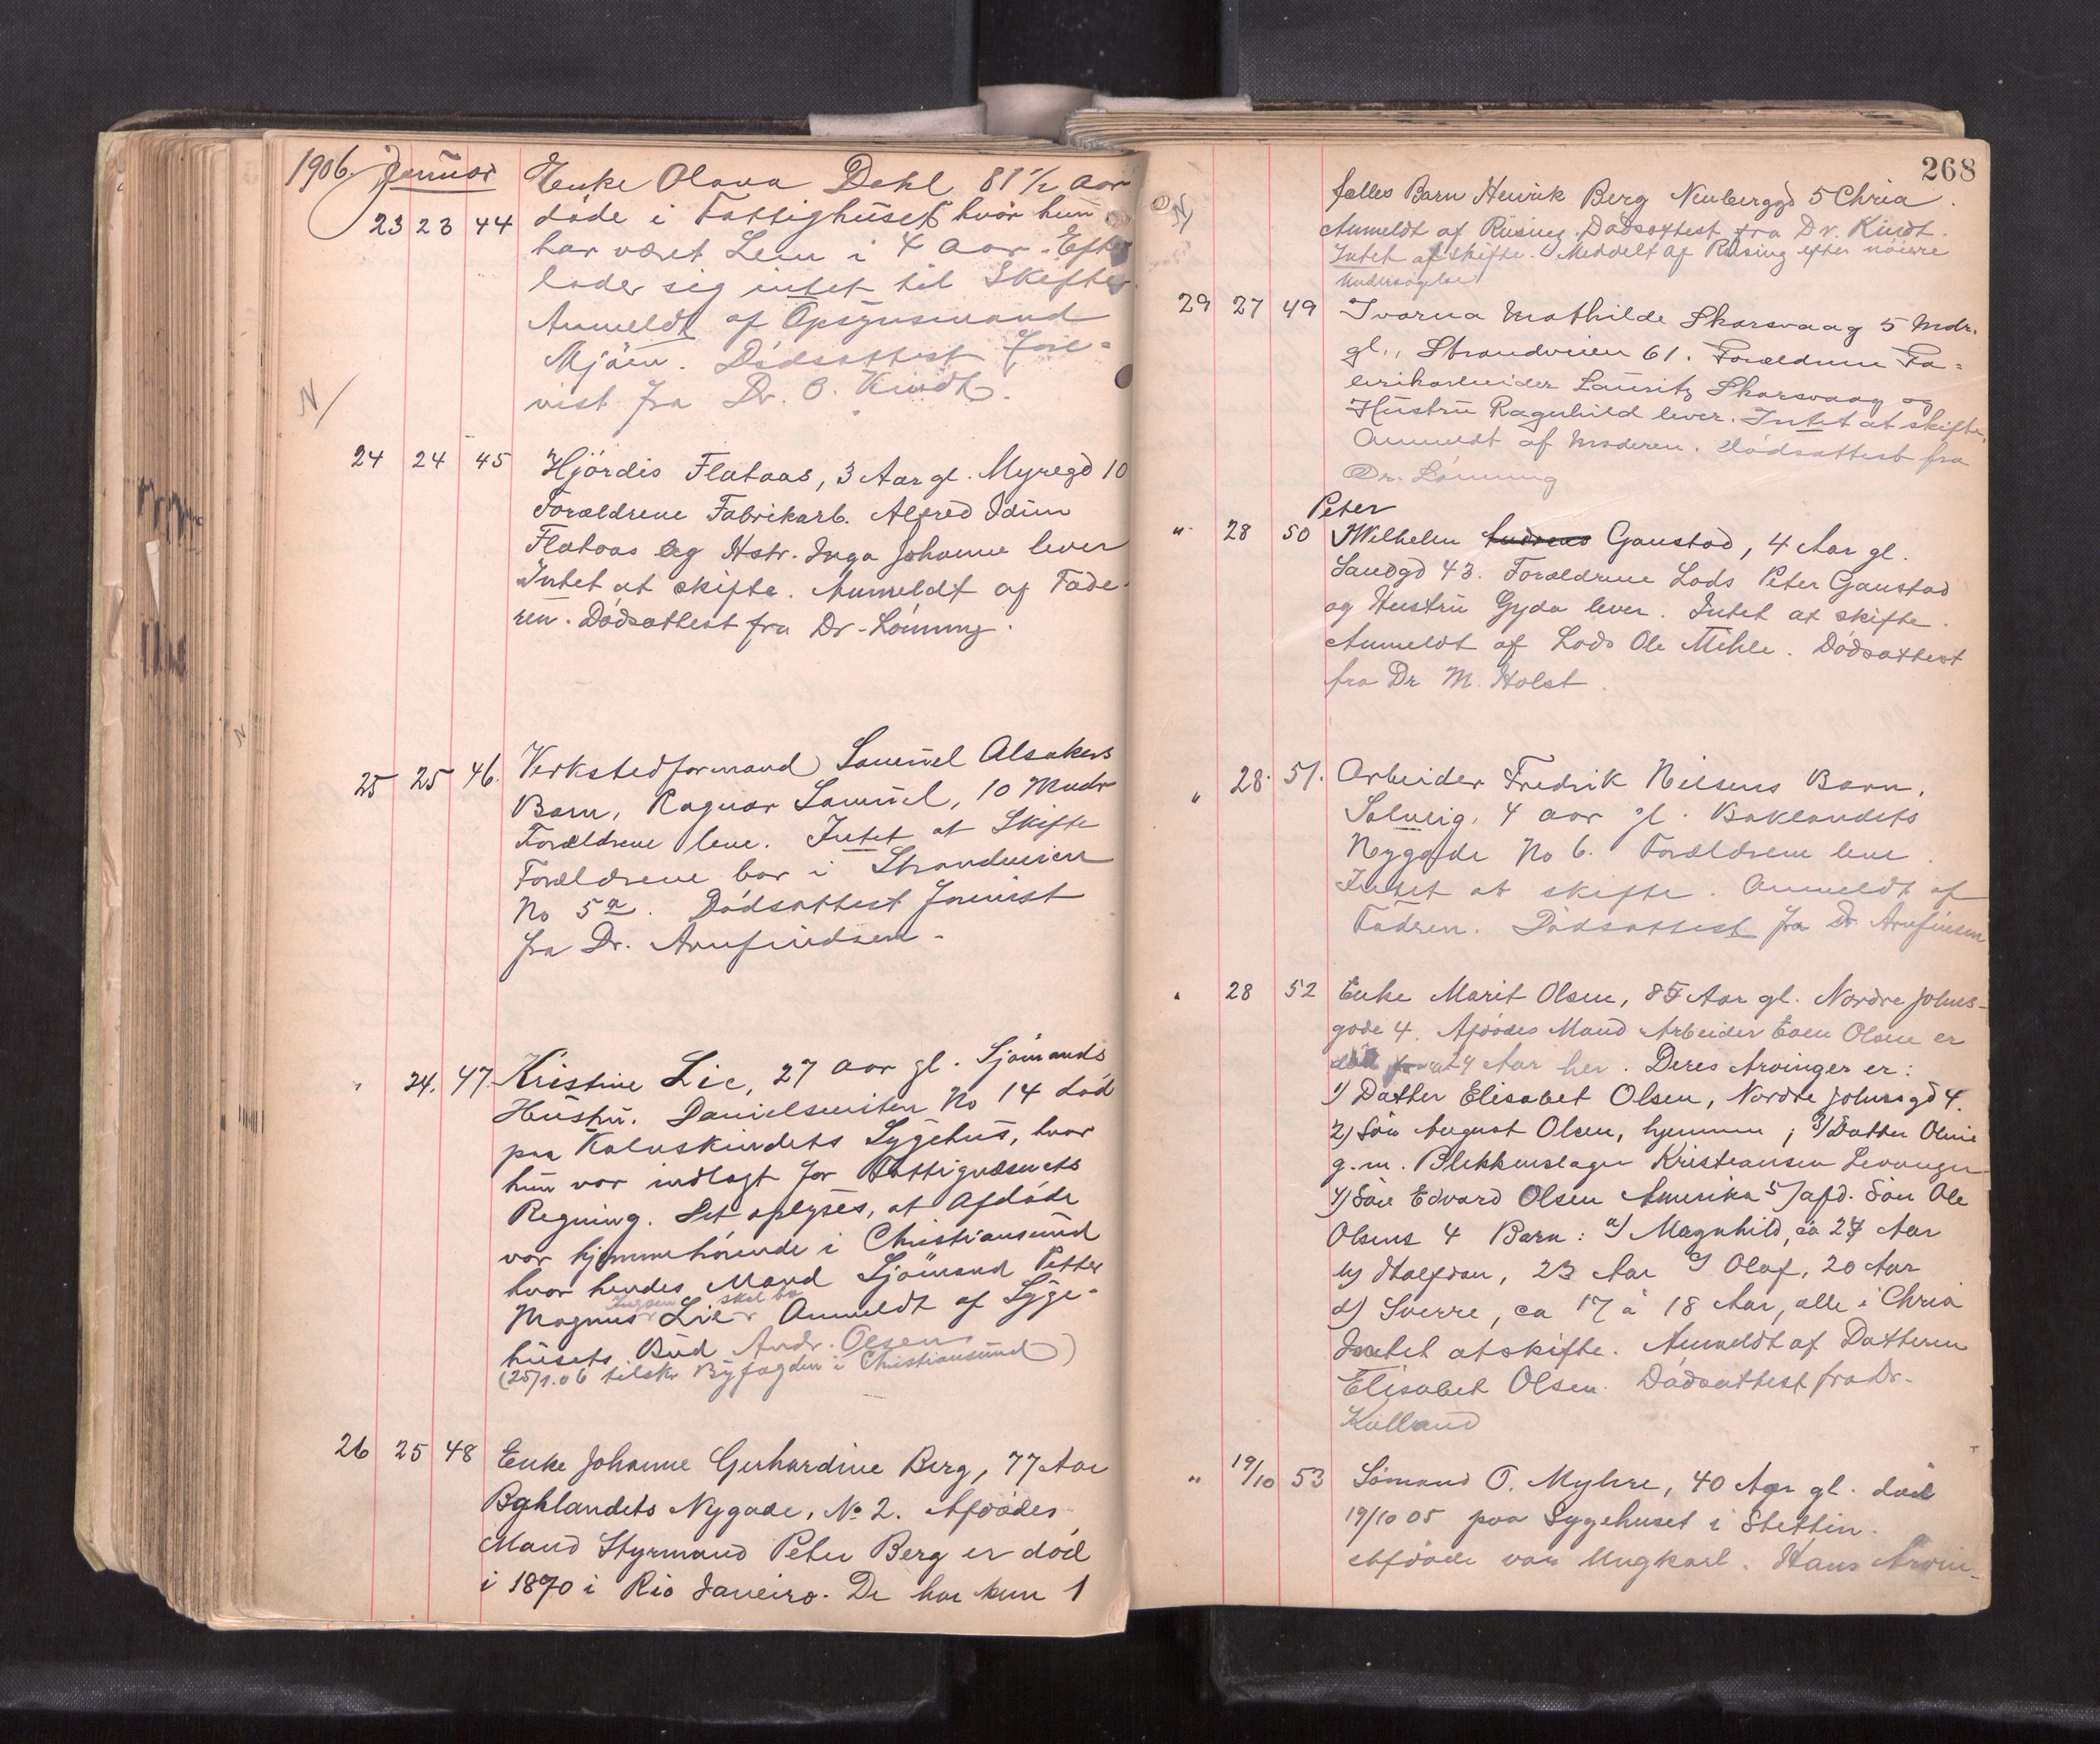 1906. Januar Enke Olava Dahl 81 1/2 Aar
23 23 44 døde i Fattighuset hvor hun
har været Lem i 4 Aar. Efter
lader sig intet til Skifte.
Anmeldt af Opsynsmand
Mjöen. Dødsattest fore-
vist fra Dr. O. Kindt.
N
24 24 45 Hjördis Flataas, 3 Aar gl. Myregd 10
Forældrene Fabrikarb. Alfred
Flataas og Hstr. Inga Johanne lever
Intet at skifte. Anmeldt af Fade-
ren. Dödsattest fra Dr. Lönning.
25 25 46. Verkstedformand Samuel Alsakers
Barn, Ragnar Samuel, 10 Mndr
Forældrene leve. Intet at Skifte
Forældrene bor i Strandveien
No 5a. Dödsattest forevist
fra Dr. Arnfindsen.
" 24. 47. Kristine Lie, 27 Aar gl. Sjömands
Hustru. Danielsveiten No 14 död
paa Kalvskindets Sygehus, hvor
hun var indlagt for Fattigvæsnets
Regning. Det oplyses, at Afdöde
var hjemmehörende i Christiansund
hvor hendes Mand Sjömand Petter
Magnus Lie skal bo Anmeldt af Syge-
husets Bud Andr. Olsen
(25/1.06 tilskr Byfogden i Christiansund)
26 25 48 Enke Johanne Gerhardine Berg, 77 Aar
Baklandets Nygade, No 2. Afdödes
Mand Styrmand Peter Berg er död
i 1870 i Rio Janeiro. De har kun 1
268
fælles Barn Henrik Berg Neuberggd 5 Chria.
Anmeldt af Rüsing. Dödsattest fra Dr. Kindt.
Intet at skifte. Meddelt af Rüsing efter nöiere
Undersögelse
N
29 27 49 Ivarna Mathilde Skarsvaag 5 Mdr.
gl., Strandveien 61. Forældrene Fa-
brikarbeider Lauritz Skarsvaag og
Hustru Ragnhild lever. Intet at skifte.
Anmeldt af Moderen. Dödsattest fra
Dr. Lönning
Peter
" 28 50 Wilhelm Andreas Gaustad, 4 Aar gl.
Sandgd 43. Forældrene Lods Peter Gaustad
og Hustru Gyda lever. Intet at skifte.
Anmeldt af Lods Ole Mehle. Dödsattest
fra Dr M. Holst.
" 28. 51. Arbeider Fredrik Nilsens Barn,
Solveig, 4 Aar gl. Baklandets
Nygade No 6. Forældrene leve.
Intet at skifte. Anmeldt af
Fadren. Dödsattest fra Dr. Arnfinsen
" 28 52 Enke Marit Olsen, 85 Aar gl. Nordre Johns-
gade 4. Afdödes Mand Arbeider Even Olsen er
död for 24 Aar her. Deres Arvinger er:
1) Datter Elisabet Olsen, Nordre Johnsgd 4.
2) Sön August Olsen, hjemme; 3) Datter Oline
g.m. Blikkenslager Kristiansen Levanger
4) Sön Edvard Olsen Amerika 5) afd. Sön Ole
Olsens 4 Barn: a) Magnhild, ca 24 Aar
b) Halfdan, 23 Aar c) Olaf, 20 Aar
d) Sverre, ca 17 à 18 Aar, alle i Chria
Intet at skifte. Anmeldt af Datteren
Elisabet Olsen. Dödsattest fra Dr.
Kielland
" 19/10 53 Sömand O. Myhre, 40 Aar gl. död
19/10 05 paa Sygehuset i Stettin.
Afdöde var Ungkarl. Hans Arvin-